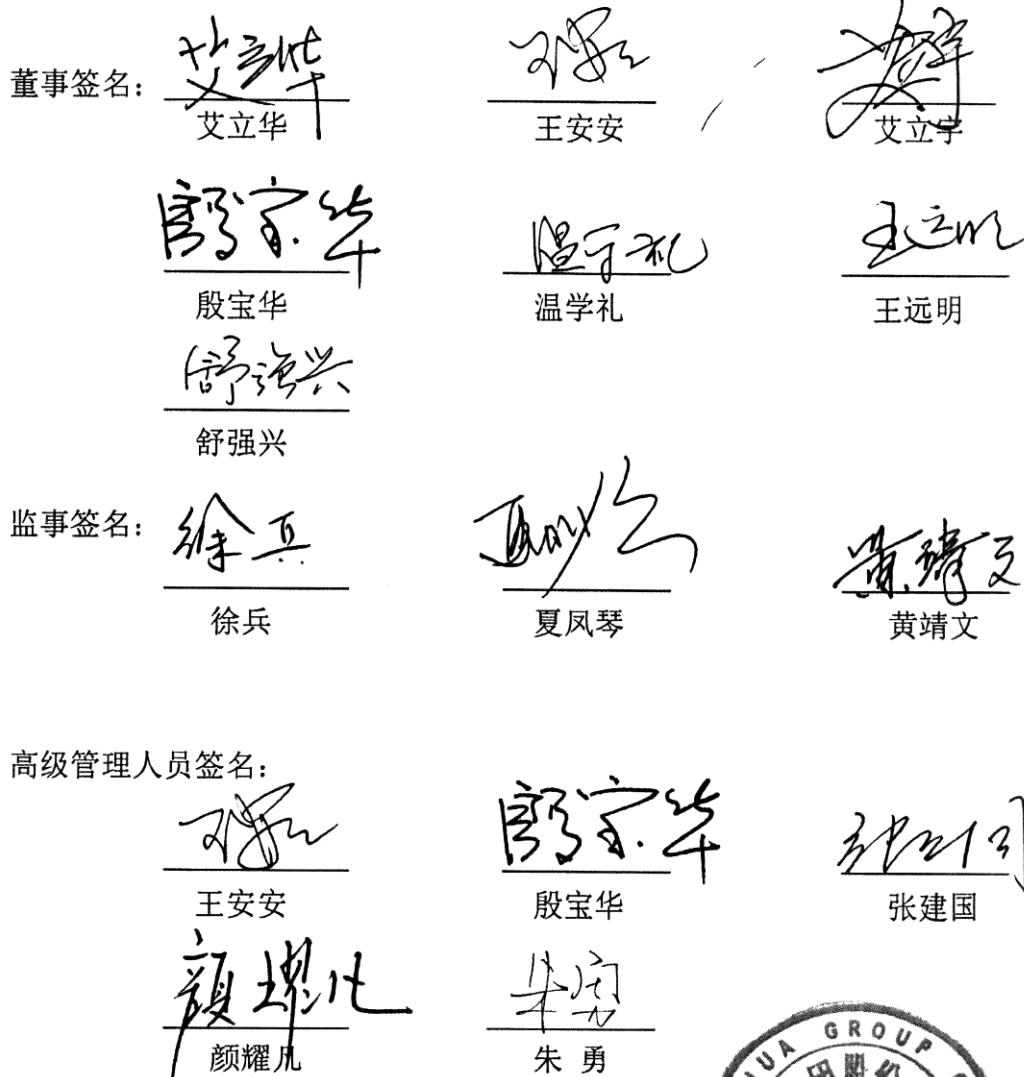 董事签名：
艾立华 王安安 艾立宇
殷宝华 温学礼 王远明
舒强兴
监事签名：
徐兵 夏凤琴 黄靖文
高级管理人员签名：
王安安 殷宝华 张建国
颜耀凡 朱 勇
HUA GROUP